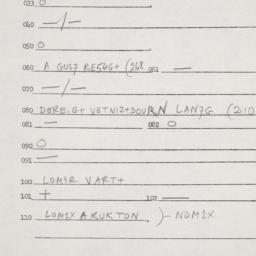 033 O
040 —/—
050 O
060 A GUS7 RE54G+ (268 063 —
070 —/—
080 VETNIZ+SOURN LAN7G (2010
081 — 082 O
090 O
091 —
100 LOM3R VART+
101 + 102 —
110 LOM1X ARUKTON )—NOM1X